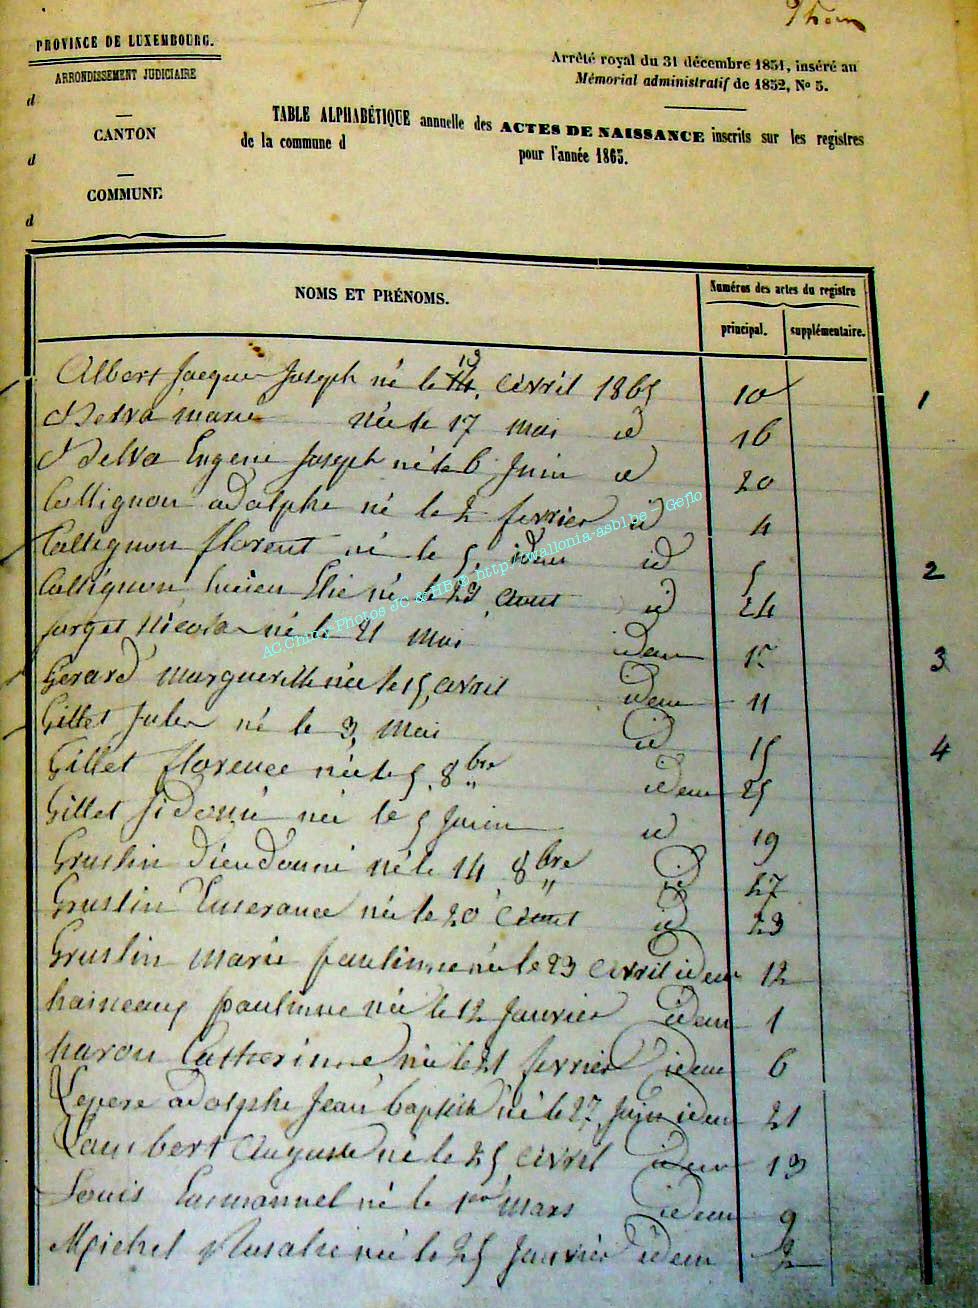 Thom
PROVINCE DE LUXEMBOURG.
ARRONDISSEMENT JUDICIAIRE
d
CANTON
d
COMMUNE
d
Arrêté royal du 31 décembre 1851, inséré au
Mémorial administratif de 1852, No 5.
TABLE ALPHABÉTIQUE annuelle des ACTES DE NAISSANCE inscrits sur les registres
de la commune d pour l'année 1865.
NOMS ET PRÉNOMS.
Numéros des actes du registre
principal. supplémentaire.
Albert Jacques Joseph né le 19 avril 1865 10 1
Delva marie née le 17 mai id 16
Delva Eugene Joseph né le 6 Juin id 20
Collignon adolphe né le 2 fevrier id 4
Collignon florent né le 5 idem id 5 2
Collignon lucien Elie né le 29 aout id 24
forget Nicolas né le 21 Mai idem 17 3
Gerard Margueritte née le 15 avril idem 11
Gillet Jules né le 3 Mai id 15 4
Gillet florence née le 5 8bre idem 25
Gillet Sidonie née le 5 Juin id 19
Gruslin dieudonné né le 14 8bre id 27
Gruslin née le 20 aout id 23
Gruslin marie paulinne née le 23 avril idem 12
haineaux paulinne née le 12 Janvier idem 1
haron Catherinne née le 21 fevrier idem 6
Lepere adolphe Jean baptiste né le 27 Juin idem 21
Lambert Auguste né le 25 avril idem 13
Louis Emmanuel né le 1er mars idem 9
Michel Rosalie née le 25 Janvier idem 2
AC.Chiny Photos JC & HB © http://wallonia-asbl.be - Geflo